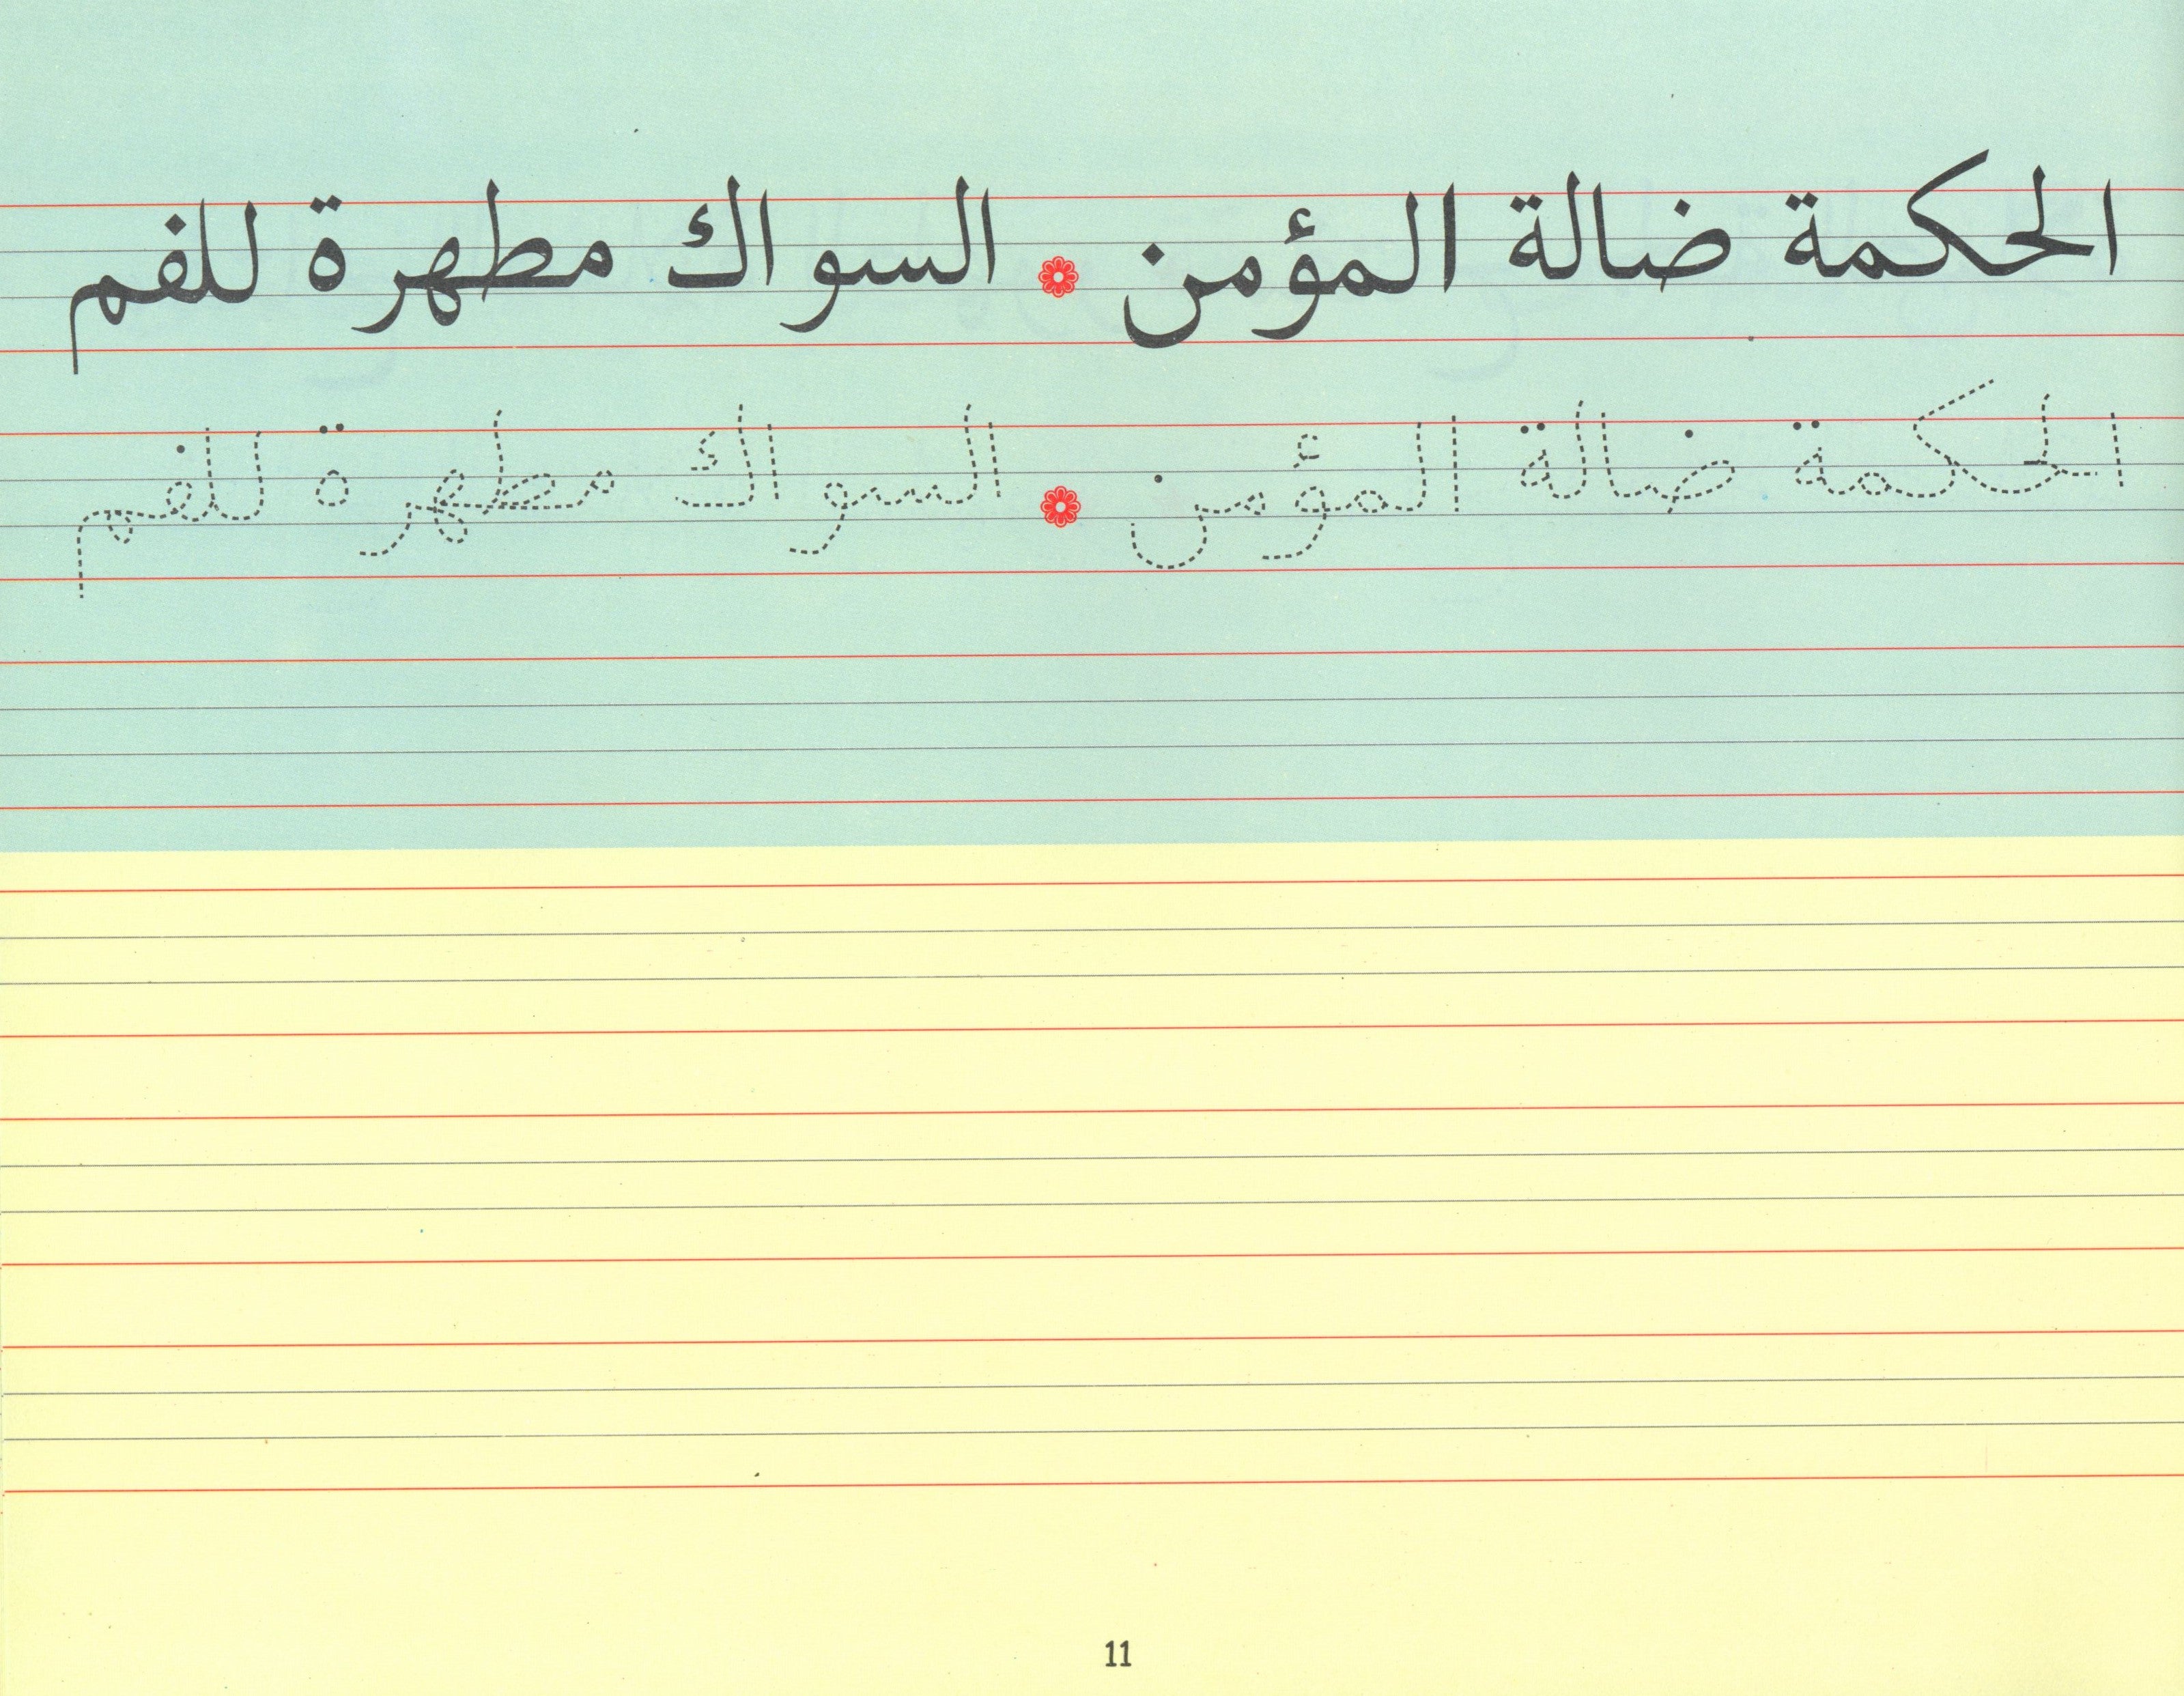 الحكمة ضالة المؤمن ❁ السواك مطهرة للفم
الحكمة ضالة المؤمن ❁ السواك مطهرة للفم
11